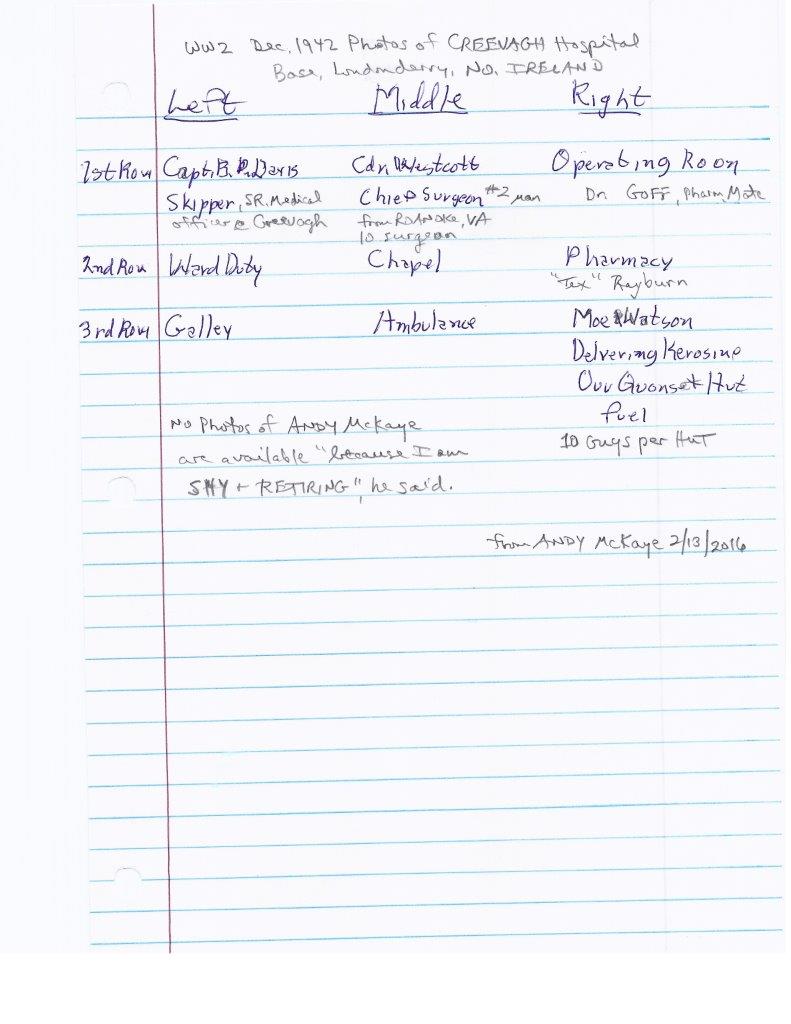 WW2 Dec. 1942 Photos of CREEVAGH Hospital
Base, Londonderry, NO. IRELAND
Left Middle Right
1st Row Capt. B. R. Davis Cdr. Westcott Operating Room
Skipper, SR. Medical Chief Surgeon #2 man Dr. Goff, Pharm. Mate
officer @ Creevagh from ROANOKE, VA
10 surgeon
2nd Row Ward Duty Chapel Pharmacy
"Tex" Rayburn
3rd Row Galley Ambulance Moe Watson
Delvering Kerosine
Our Quonset Hut
fuel
No Photos of ANDY McKaye 10 Guys per HuT
are available "because I am
SHY + RETIRING", he said.
from ANDY McKaye 2/13/2016